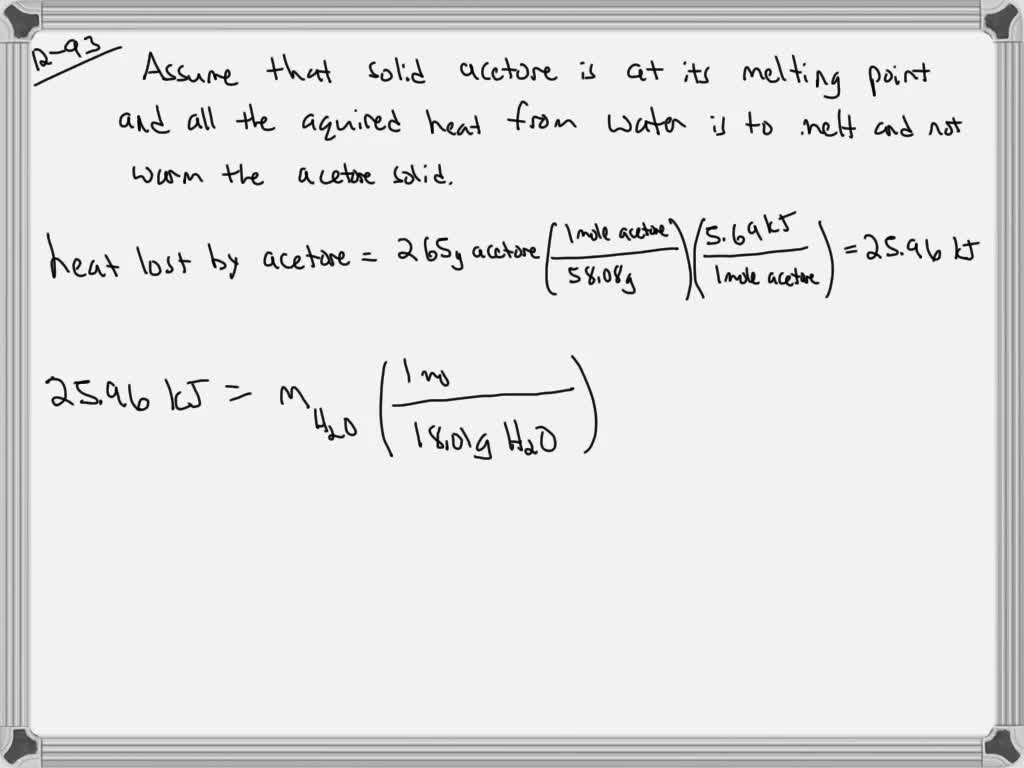 12-93
Assume that solid acetone is at its melting point
and all the aquired heat from water is to melt and not
warm the acetone solid.
heat lost by acetone = 265g acetone (1 mole acetone / 58.08g) (5.69 kJ / 1 mole acetone) = 25.96 kJ
25.96 kJ = m H₂O (1 mo / 18.01g H₂O)